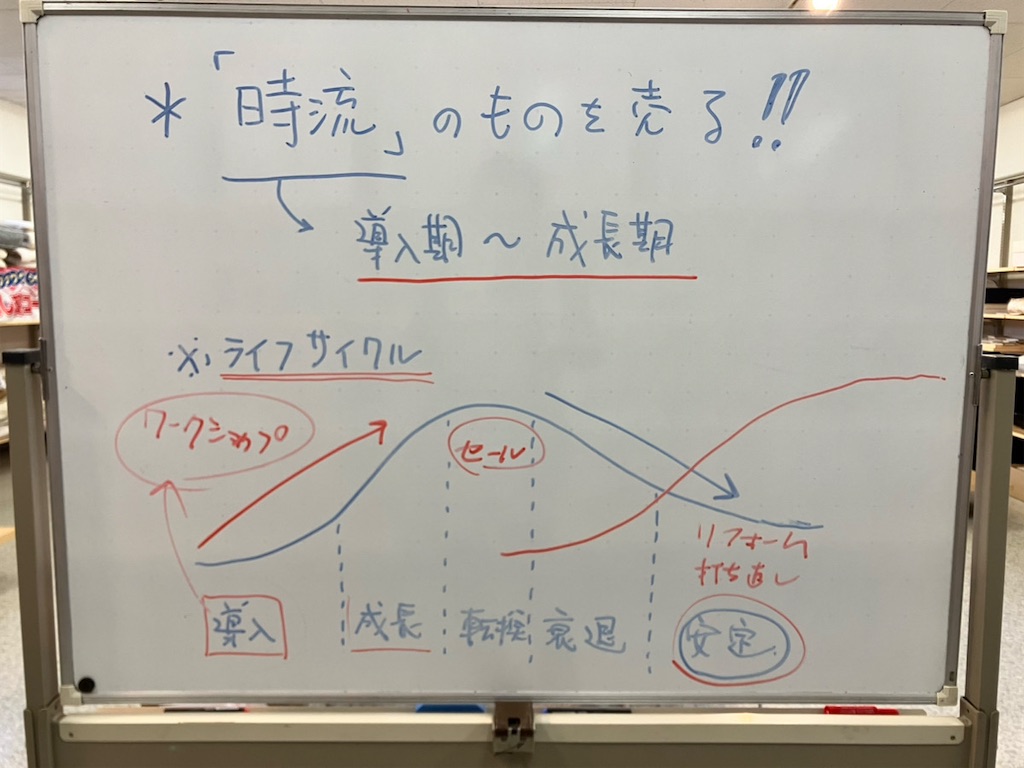 *「時流」のものを売る!!
導入期〜成長期
※ライフサイクル
ワークショップ
セール
リフォーム
打ち直し
導入 成長 転換 衰退 安定